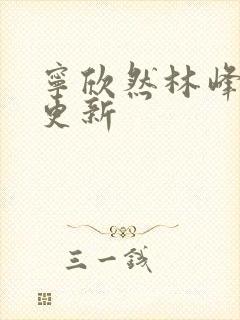 寧欣然林峰
更新
三一錢